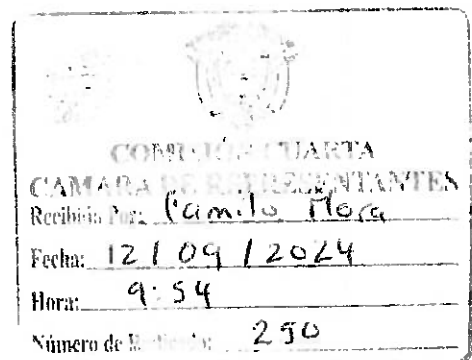 COMISIÓN CUARTA
CAMARA DE REPRESENTANTES
Recibido Por: Camilo Mora
Fecha: 12 / 09 / 2024
Hora: 9:54
Número de